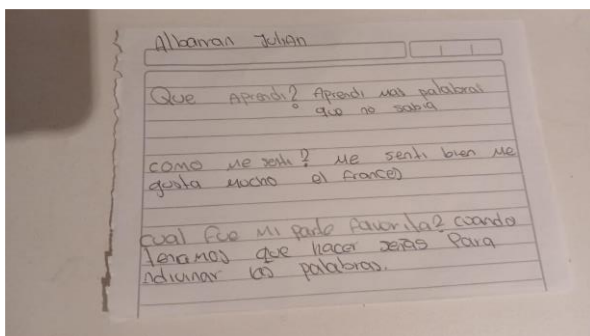 Albarran Julian
Que Aprendi? Aprendi mas palabras
que no sabia
como me senti? me senti bien me
gusta mucho el frances
cual fue mi parte favorita? cuando
teniamos que hacer señas Para
adivinar las palabras.